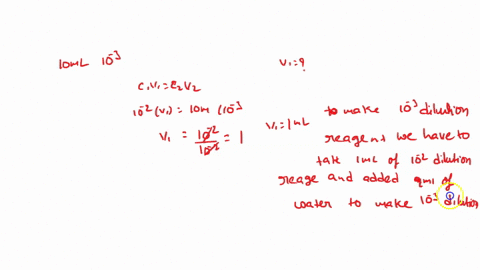 10mL 10⁻³
V₁=?
C₁V₁=C₂V₂
10⁻²(V₁) = 10m (10⁻³
V₁ = 10⁻²/10⁻² = 1
V₁=1mL
to make 10⁻³ dilution
reagent we have to
tak 1mL of 10⁻² dilution
reage and added 9ml of
water to make 10⁻³ dilution